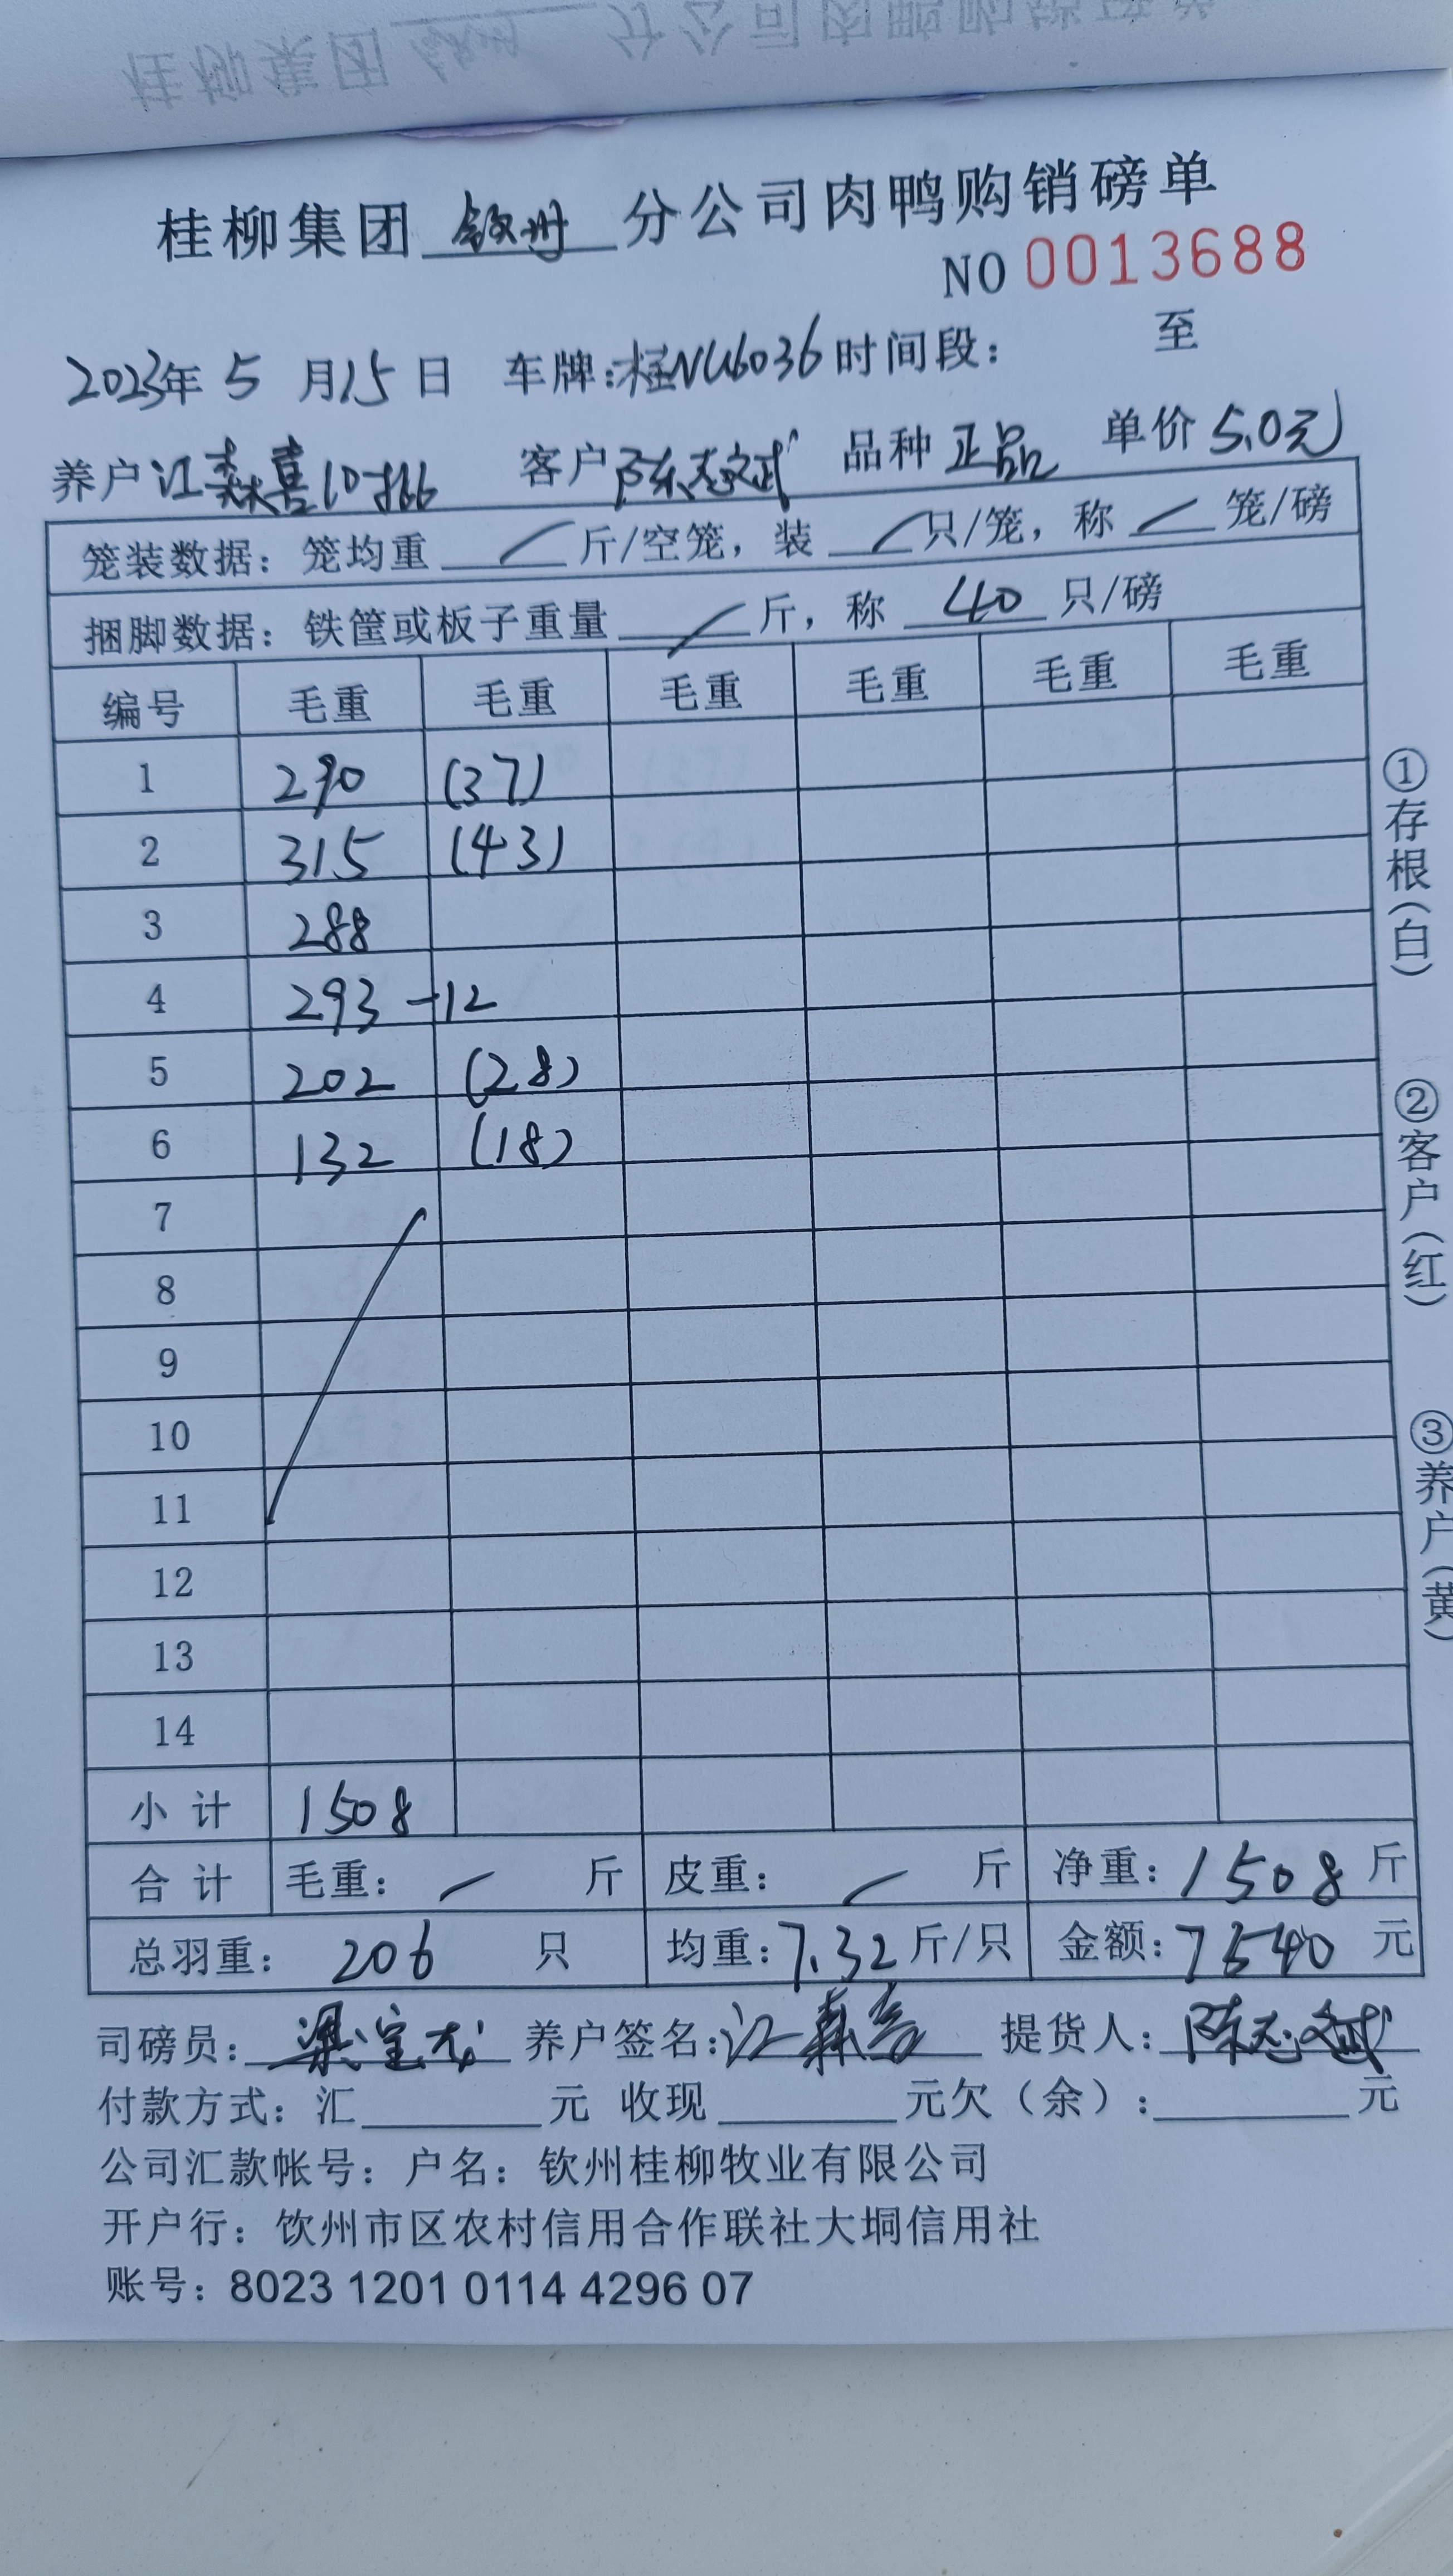 桂柳集团 钦州 分公司肉鸭购销磅单
NO 0013688
2023年 5 月15日 车牌:桂NU6036 时间段: 至
养户 江森喜10批 客户 陈志斌 品种 正品 单价 5.0元
笼装数据: 笼均重 / 斤/空笼, 装 / 只/笼, 称 / 笼/磅
捆脚数据: 铁筐或板子重量 / 斤, 称 40 只/磅
编号 毛重 毛重 毛重 毛重 毛重 毛重
1 290 (37)
2 315 (43)
3 288
4 293 -12
5 202 (28)
6 132 (18)
7
8
9
10
11
12
13
14
小 计 1508
合 计 毛重: / 斤 皮重: / 斤 净重: 1508 斤
总羽重: 206 只 均重: 7.32 斤/只 金额: 7540 元
司磅员: 梁宝龙 养户签名: 江森喜 提货人: 陈志斌
付款方式: 汇 元 收现 元欠(余): 元
公司汇款帐号: 户名: 钦州桂柳牧业有限公司
开户行: 钦州市区农村信用合作联社大垌信用社
账号: 8023 1201 0114 4296 07
①存根(白)
②客户(红)
③养户(黄)